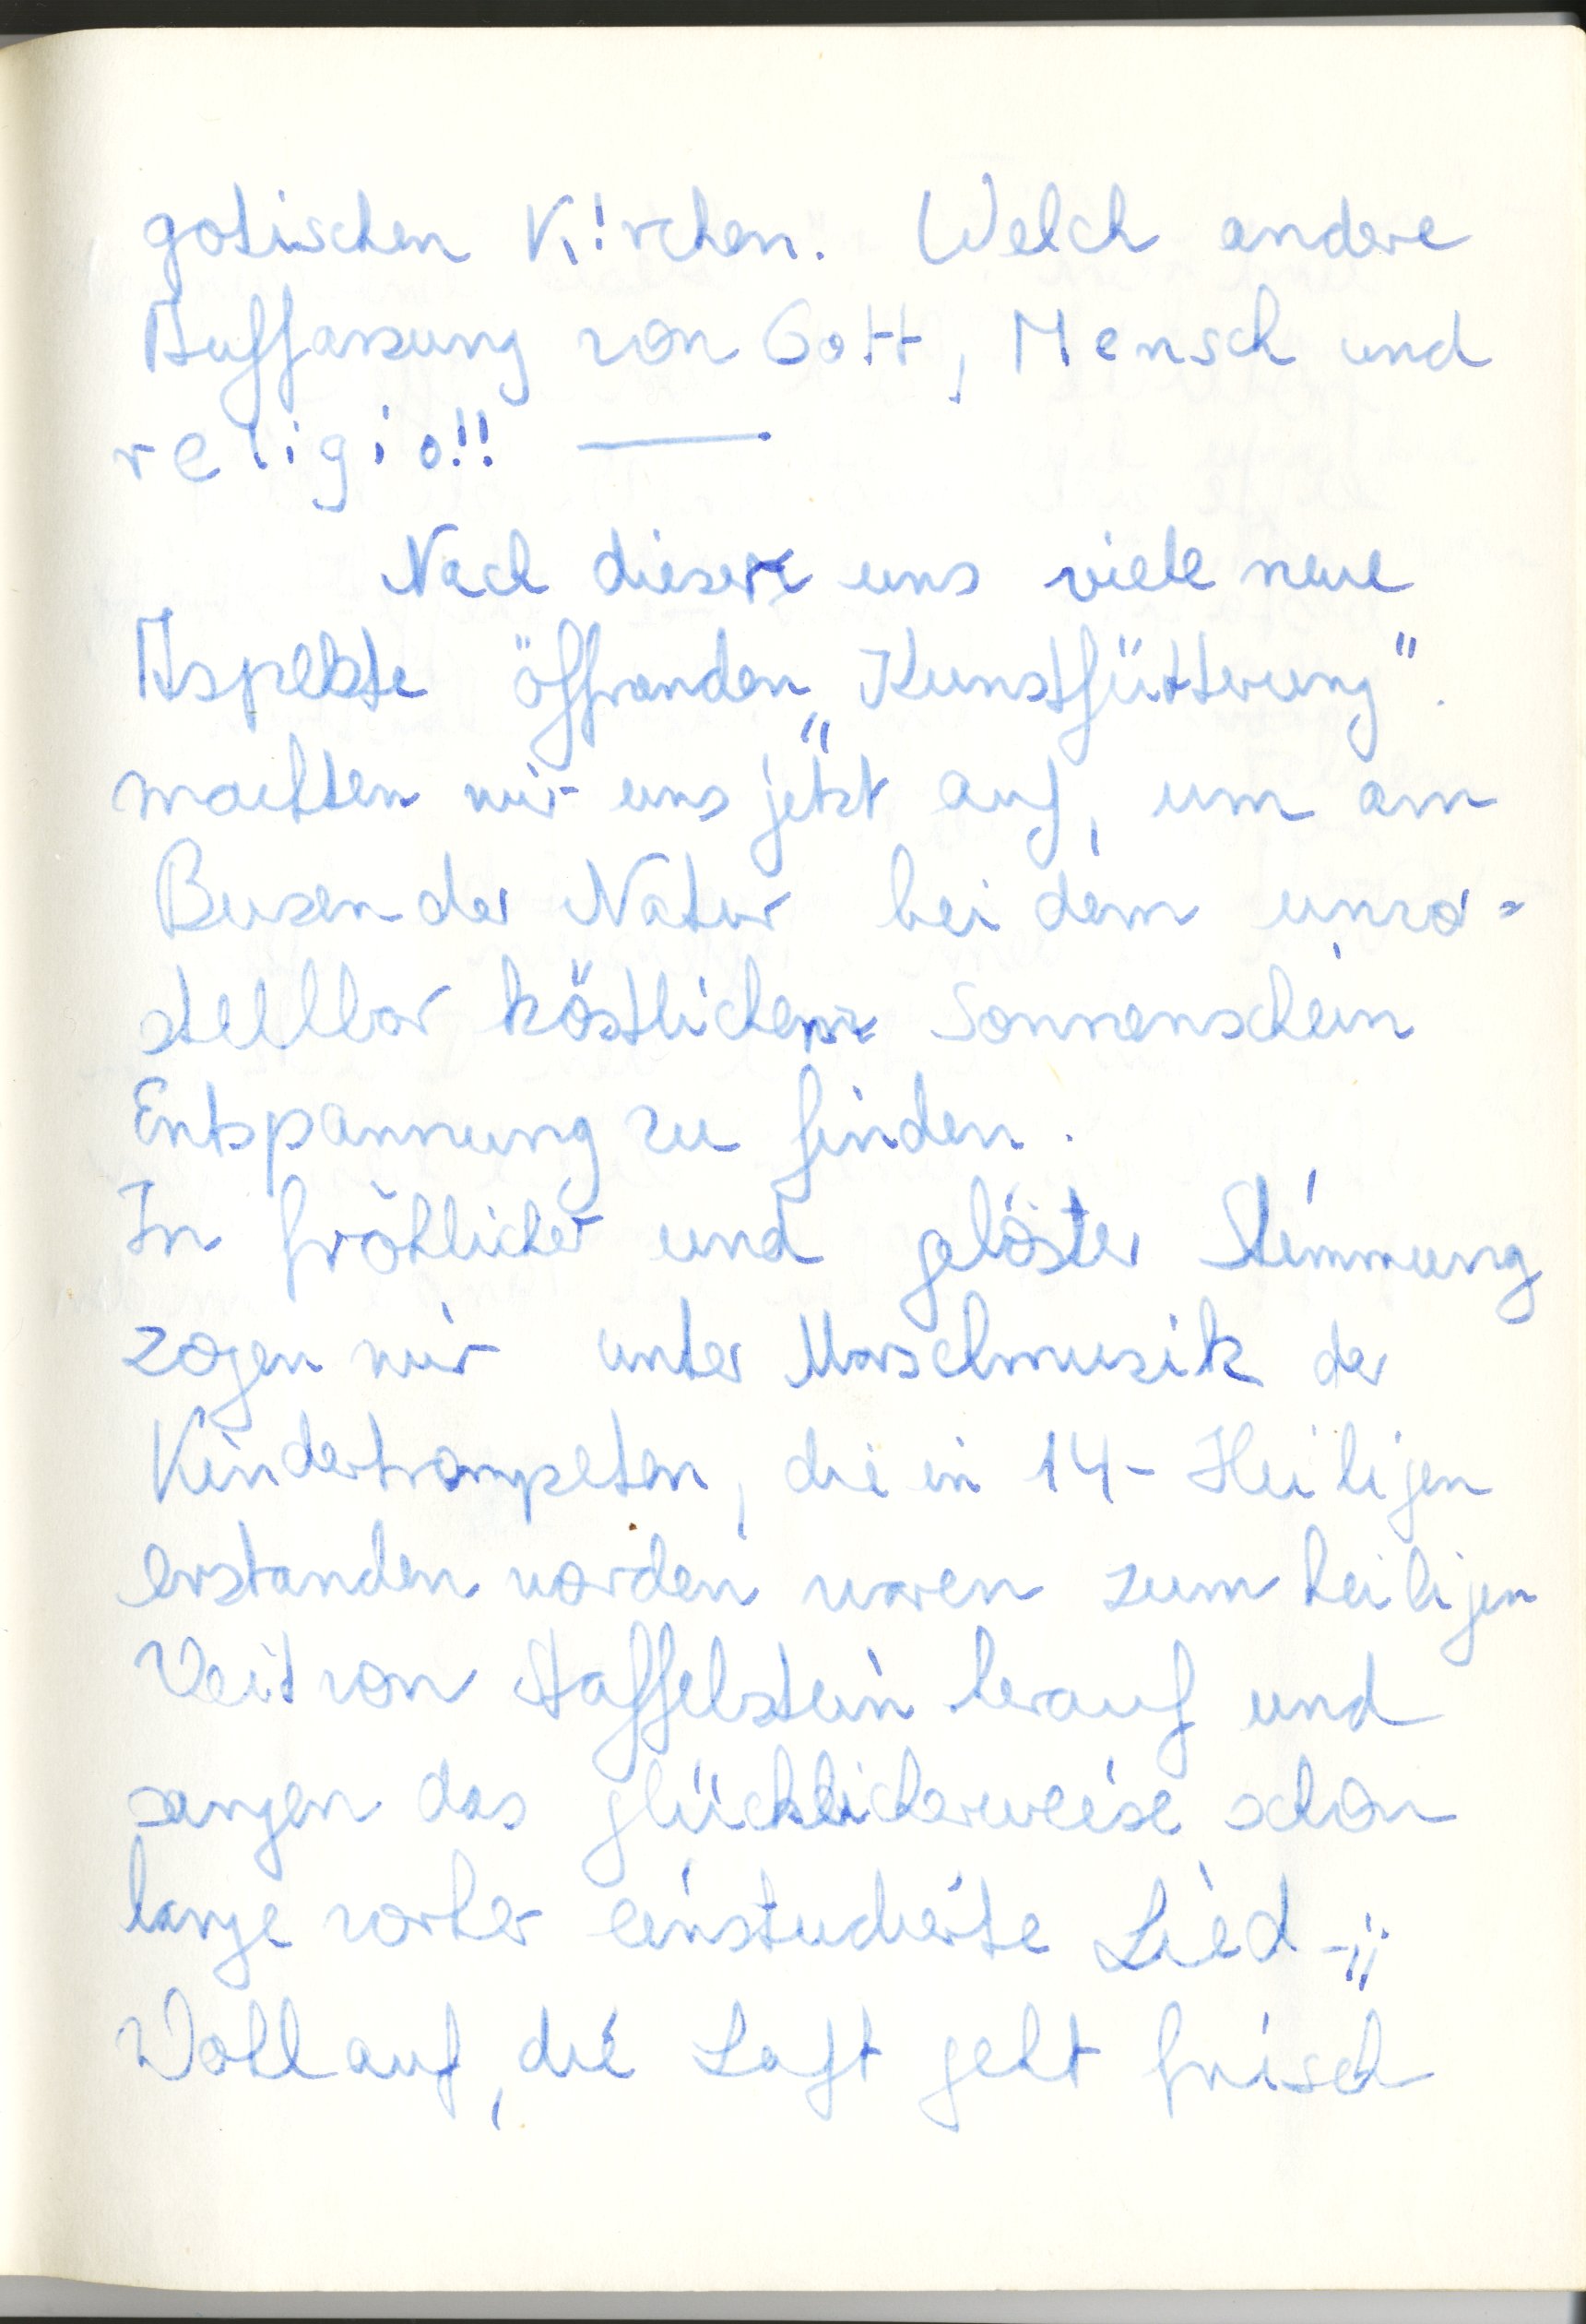 gotischen Kirchen. Welch andere
Auffassung von Gott, Mensch und
religio!! —
Nach dieser uns viele neue
Aspekte öffnenden „Kunstfütterung“.
machten wir uns jetzt auf, um am
Busen der Natur bei dem unvor=
stellbar köstlichem Sonnenschein
Entspannung zu finden.
In fröhlicher und gelöster Stimmung
zogen wir unter Marschmusik der
Kindertrompeten, die in 14-Heiligen
erstanden worden waren zum heiligen
Veit von Staffelstein herauf und
sangen das glücklicherweise schon
lange vorher einstudierte Lied -: „
Wohl auf, die Luft geht frisch